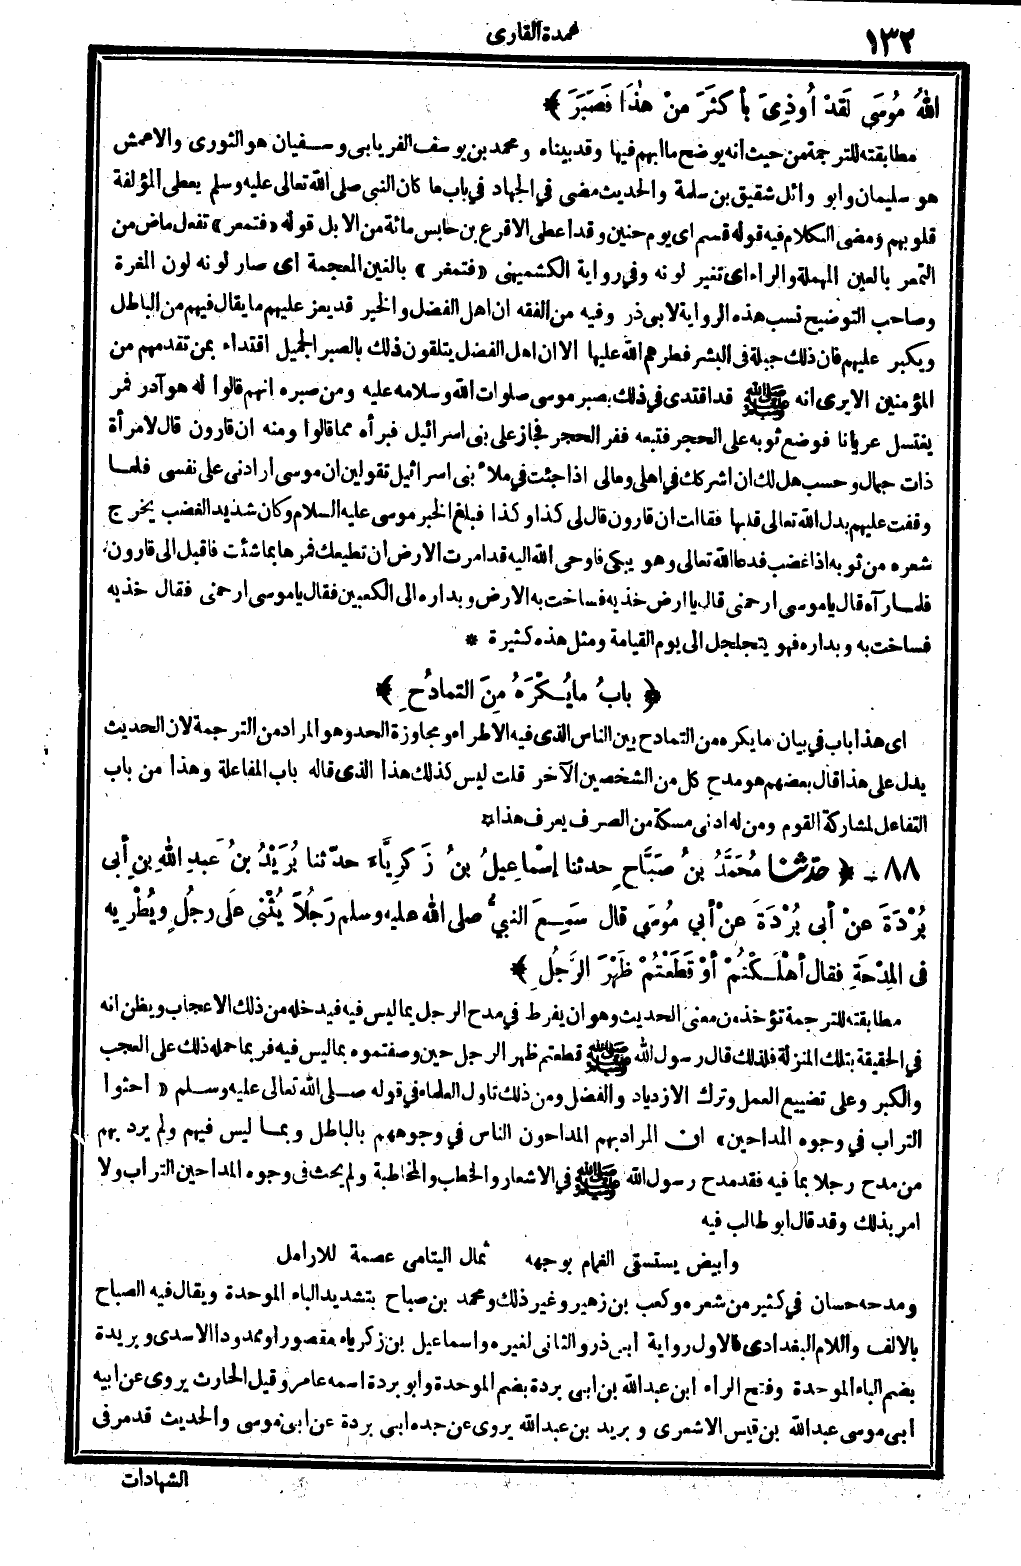 ١٣٢
عمدة القارى
اللهُ مُوسَى لَقَدْ أُوذِىَ بِأَكْثَرَ مِنْ هٰذَا فَصَبَرَ ﴾
مطابقته للترجمة من حيث انه يوضح ما ابهم فيها وقد بيناه ومحمد بن يوسف الفريابى وسفيان هو الثورى والاعمش
هو سليمان وابو وائل شقيق بن سلمة والحديث مضى في الجهاد في باب ما كان النبي صلى الله تعالى عليه وسلم يعطى المؤلفة
قلوبهم ومضى الكلام فيه قوله قسم اى يوم حنين وقد اعطى الاقرع بن حابس مائة من الابل قوله «فتمعر» تفعل ماض من
التمعر بالعين المهملة والراء اى تغير لونه وفي رواية الكشميهنى «فتمغر» بالغين المعجمة اى صار لونه لون المغرة
وصاحب التوضيح نسب هذه الرواية لابى ذر وفيه من الفقه ان اهل الفضل والخير قد يعز عليهم ما يقال فيهم من الباطل
ويكبر عليهم فان ذلك جبلة فى البشر فطرهم الله عليها الا ان اهل الفضل يتلقون ذلك بالصبر الجميل اقتداء بمن تقدمهم من
المؤمنين الا يرى انه ﷺ قد اقتدى في ذلك بصبر موسى صلوات الله وسلامه عليه ومن صبره انهم قالوا له هو آدر فمر
يغتسل عريانا فوضع ثوبه على الحجر فتبعه ففر الحجر فجاز على بنى اسرائيل فبرأه مما قالوا ومنه ان قارون قال لامرأة
ذات جمال وحسب هل لك ان اشركك في اهلى ومالى اذا جئت في ملأ بنى اسرائيل تقولين ان موسى ارادنى على نفسى فلما
وقفت عليهم بدل الله تعالى قلبها فقالت ان قارون قال لى كذا وكذا فبلغ الخبر موسى عليه السلام وكان شديد الغضب يخرج
شعره من ثوبه اذا غضب فدعا الله تعالى وهو يبكى فاوحى الله اليه قد امرت الارض ان تطيعك فمرها بما شئت فاقبل الى قارون
فلما رآه قال يا موسى ارحمنى قال يا ارض خذيه فساخت به الارض وبداره الى الكعبين فقال يا موسى ارحمنى فقال خذيه
فساخت به وبداره فهو يتجلجل الى يوم القيامة ومثل هذه كثيرة *
﴿ بابُ ما يُكْرَهُ مِنَ التمادُحِ ﴾
اى هذا باب في بيان ما يكره من التمادح بين الناس الذى فيه الاطراء ومجاوزة الحد وهو المراد من الترجمة لان الحديث
يدل على هذا قال بعضهم هو مدح كل من الشخصين الآخر قلت ليس كذلك هذا الذى قاله باب المفاعلة وهذا من باب
التفاعل لمشاركة القوم ومن له ادنى مسكة من الصرف يعرف هذا *
٨٨ - ﴿ حدّثنا مُحَمَّدُ بنُ صَبَّاحٍ حدثنا إسْماعِيلُ بنُ زَكَرِيَّاءَ حدّثنا بُرَيْدُ بنُ عَبدِ اللهِ بنِ أبى
بُرْدَةَ عنْ أبى بُرْدَةَ عنْ أبي مُوسَى قال سَمِعَ النبيُّ صلى الله عليه وسلم رَجُلًا يُثْنى علَى رجُلٍ ويُطْرِيهِ
فى المِدْحَةِ فقال أهْلَكْتُمْ أوْ قَطَعْتُمْ ظَهْرَ الرَّجُلِ ﴾
مطابقته للترجمة تؤخذ من معنى الحديث وهو ان يفرط في مدح الرجل بما ليس فيه فيدخله من ذلك الاعجاب ويظن انه
في الحقيقة بتلك المنزلة فلذلك قال رسول الله ﷺ قطعتم ظهر الرجل حين وصفتموه بما ليس فيه فربما حمله ذلك على العجب
والكبر وعلى تضييع العمل وترك الازدياد والفضل ومن ذلك تاول العلماء في قوله صلى الله تعالى عليه وسلم « احثوا
التراب في وجوه المداحين» ان المراد بهم المداحون الناس في وجوههم بالباطل وبما ليس فيهم ولم يرد بهم
من مدح رجلا بما فيه فقد مدح رسول الله ﷺ في الاشعار والخطب والمخاطبة ولم يحث فى وجوه المداحين التراب ولا
امر بذلك وقد قال ابو طالب فيه
وابيض يستسقى الغمام بوجهه ثمال اليتامى عصمة للارامل
ومدحه حسان في كثير من شعره وكعب بن زهير وغير ذلك ومحمد بن صباح بتشديد الباء الموحدة ويقال فيه الصباح
بالالف واللام البغدادى فالاول رواية ابى ذر والثانى لغيره واسماعيل بن زكرياء مقصورا وممدودا الاسدى وبريدة
بضم الباء الموحدة وفتح الراء ابن عبد الله بن ابى بردة بضم الموحدة وابو بردة اسمه عامر وقيل الحارث يروى عن ابيه
ابى موسى عبد الله بن قيس الاشعرى وبريد بن عبد الله يروى عن جده ابى بردة عن ابى موسى والحديث قد مر فى
الشهادات